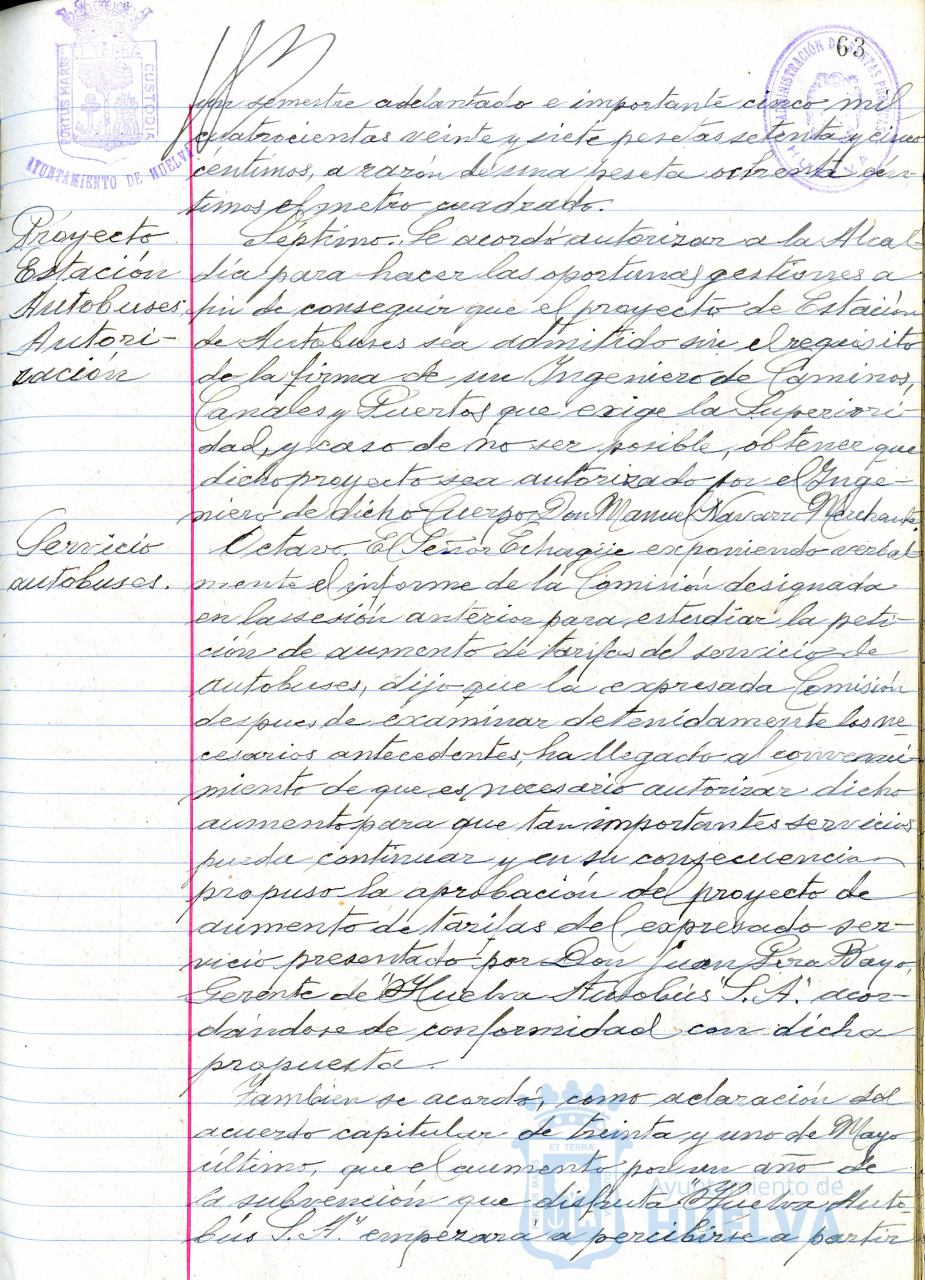 63
PORTUS MARIS ET TERRÆ CUSTODIA
AYUNTAMIENTO DE HUELVA
un semestre adelantado e importante cinco mil
cuatrocientas veinte y siete pesetas setenta y cinco
céntimos, a razón de una peseta ochenta cén-
timos el metro cuadrado.
Proyecto
Estación
Autobuses.
Autori-
zación
Séptimo. Se acordó autorizar a la Alcal-
día para hacer las oportunas gestiones a
fin de conseguir que el proyecto de Estación
de Autobuses sea admitido sin el requisito
de la firma de un Ingeniero de Caminos,
Canales y Puertos que exige la Superiori-
dad, y caso de no ser posible, obtener que
dicho proyecto sea autorizado por el Inge-
niero de dicho Cuerpo, Don Manuel Navarro
Servicio
autobuses.
Octavo. El Señor Echagüe exponiendo verbal-
mente el informe de la Comisión designada
en la sesión anterior para estudiar la peti-
ción de aumento de tarifas del servicio de
autobuses, dijo que la expresada Comisión
despues de examinar detenidamente los ne-
cesarios antecedentes, ha llegado al convenci-
miento de que es necesario autorizar dicho
aumento para que tan importantes servicios
pueda continuar y en su consecuencia
propuso la aprobación del proyecto de
aumento de tarifas del expresado ser-
vicio presentado por Don Juan Bayo,
Gerente de "Huelva Autobús S.A." acor-
dándose de conformidad con dicha
propuesta.
Tambien se acordó, como aclaración del
acuerdo capitular de treinta y uno de Mayo
último, que el aumento por un año de
la subvención que disfruta "Huelva Auto-
bús S.A." empezara a percibirse a partir
Ayuntamiento de
HUELVA